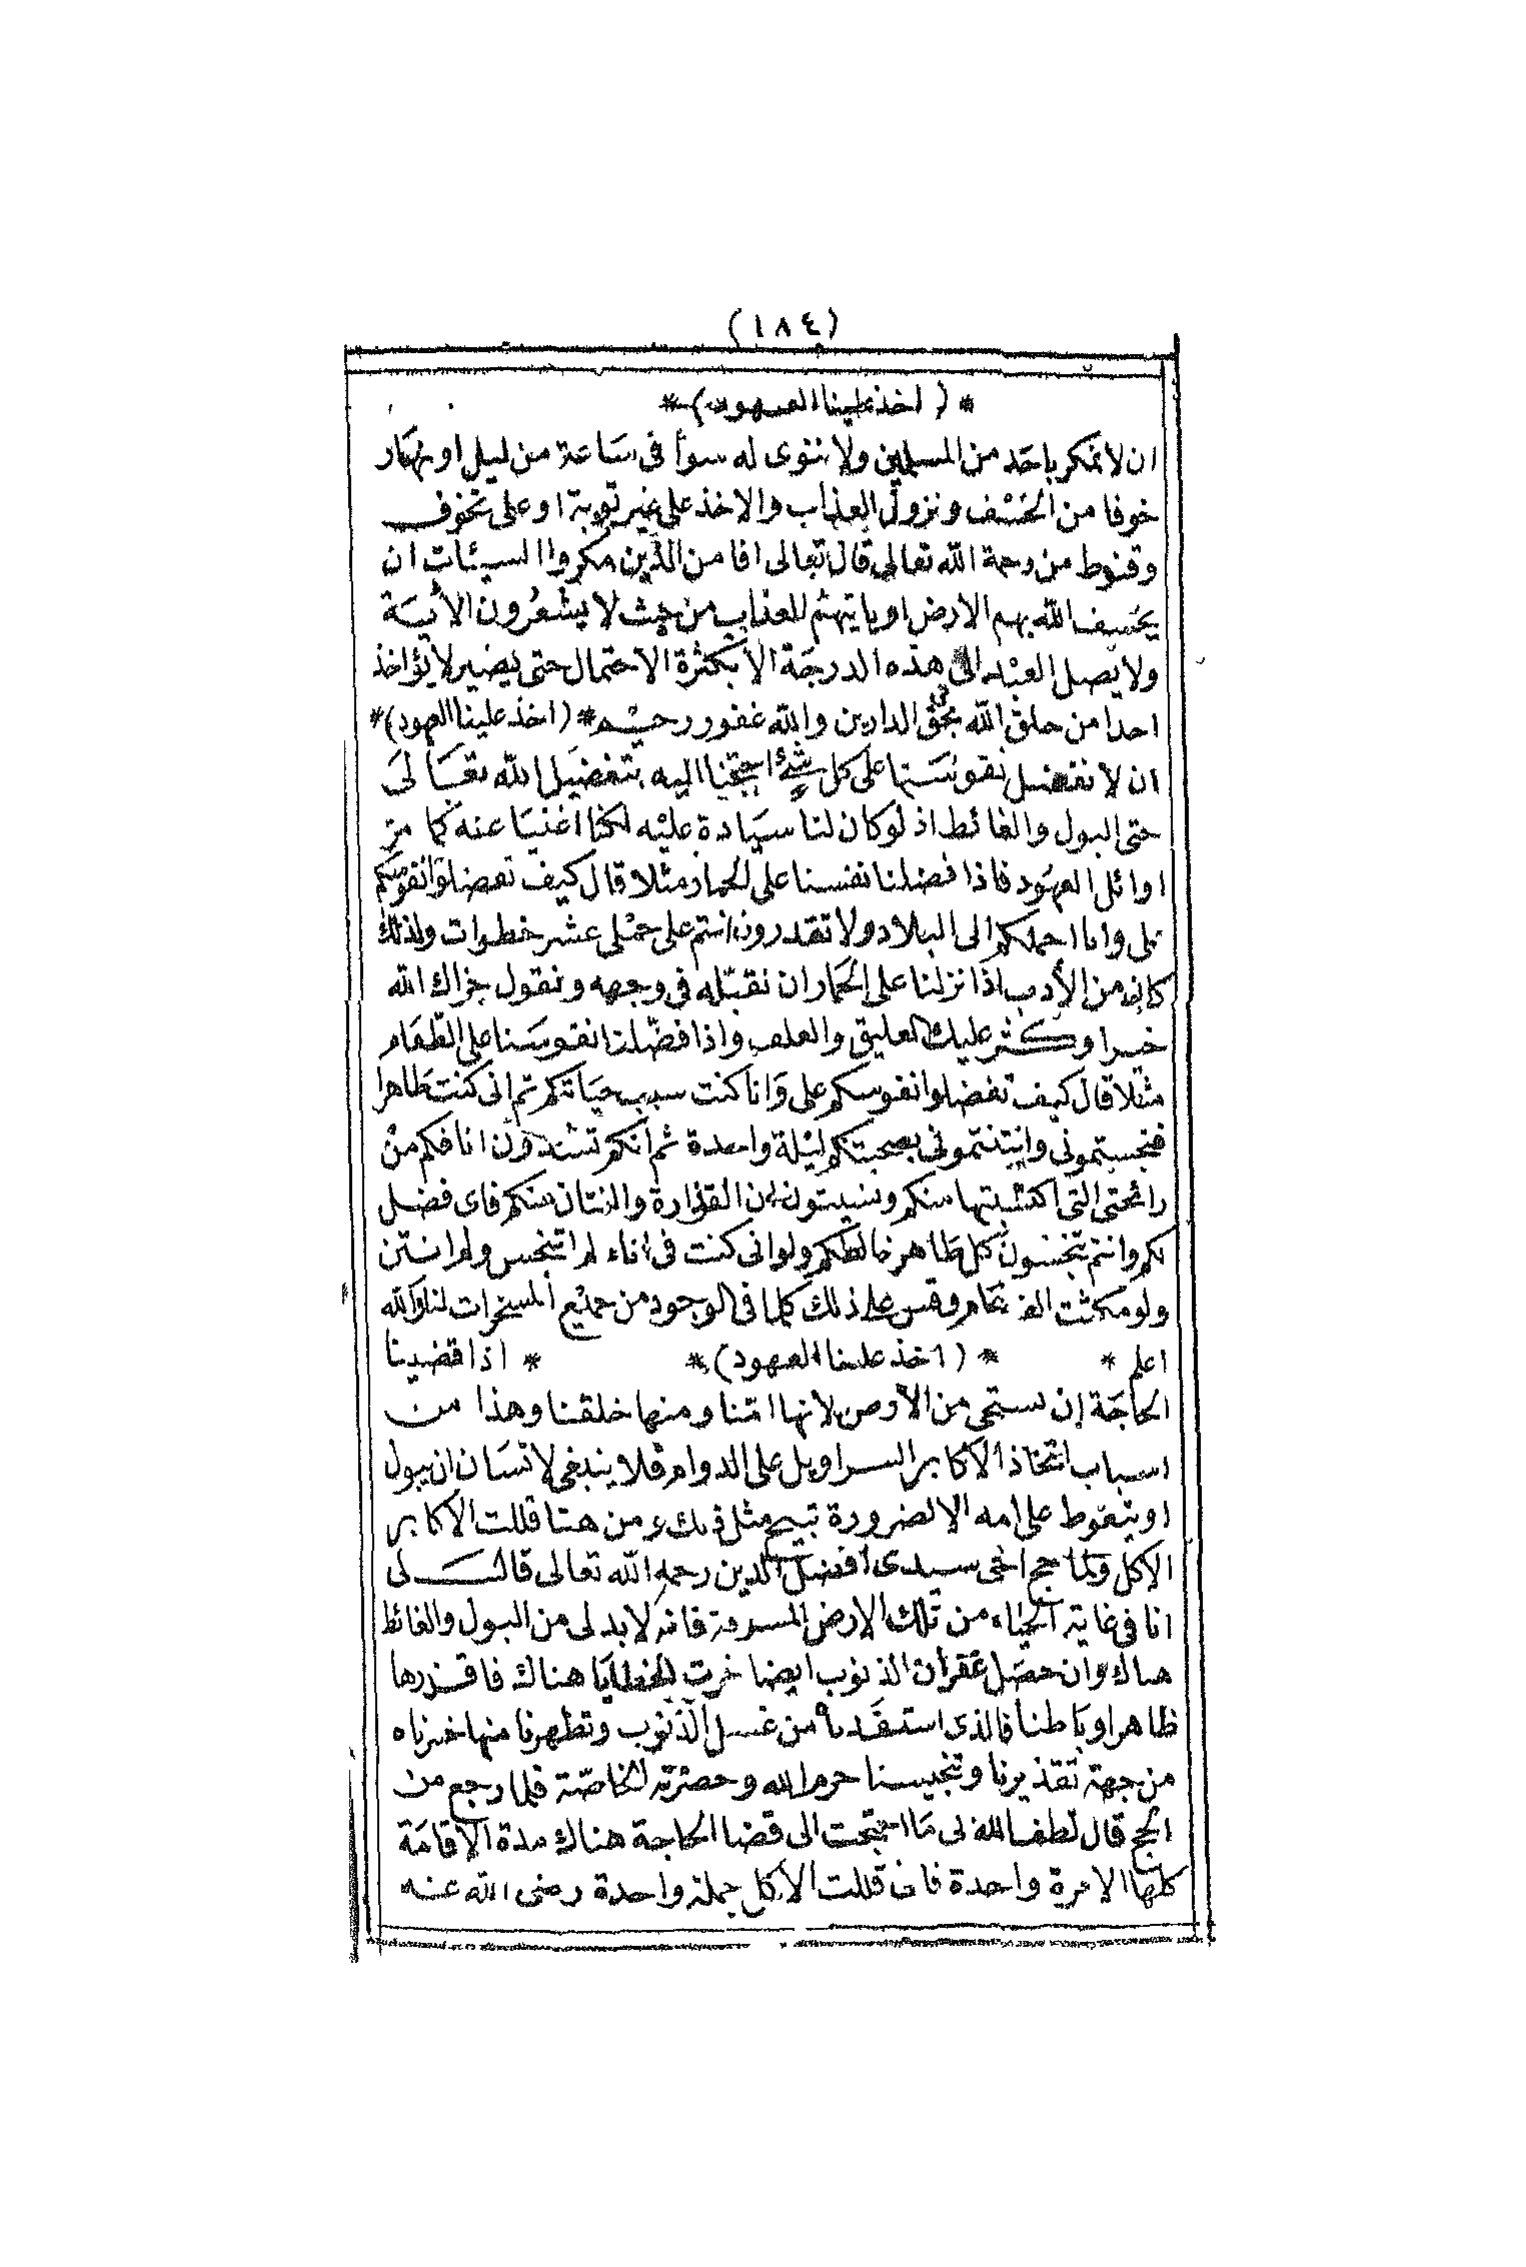 (١٨٤)
* (اخذ علينا العهود) *
ان لا نمكر باحد من المسلمين ولا ننوى له سوأ فى ساعة من ليل او نهار
خوفا من الخسف ونزول العذاب والاخذ على غير توبة او على تخوف
وقنوط من رحمة الله تعالى قال تعالى افا من الذين مكروا السيئات ان
يخسف الله بهم الارض او يا يتهم العذاب من حيث لا يشعرون الأية
ولا يصل العبد الى هذه الدرجة الا بكثرة الاحتمال حتى يصير لا يؤاخذ
احدا من خلق الله بحق فى الدارين والله غفور رحيم * (اخذ علينا العهود) *
ان لا نفضل نفوسنا على كل شئ احتجنا اليه بتفضيل الله تعالى
حتى البول والغائط اذ لو كان لنا سيادة عليه لكنا اغنيا عنه كما مر
اوائل العهود فاذا فضلنا نفسنا على الحمار مثلا قال كيف تفضلوا نفوسكم
على وانا احملكم الى البلاد ولا تقدرون انتم على حملى عشر خطوات ولذلك
كان من الأدب اذا نزلنا على الحمار ان نقبله فى وجهه ونقول جزاك الله
خيرا وكثر عليك العليق والعلف واذا فضلنا نفوسنا على الطعام
مثلا قال كيف تفضلوا نفوسكم على وانا كنت سبب حياتكم ثم انى كنت طاهرا
فنجستمونى وانتنتمونى بصحبتكم ليلة واحدة ثم انكم تشدون انا فكم من
رائحتى التى اكتسبتها منكم ونسيتون ان القذارة والنتان منكم فاى فضل
لكم وانتم تنجسون كل طاهر خالطكم ولو انى كنت فى اناء لم اتنجس ولم انتن
ولو مكثت الف عام وقس على ذلك كلما فى الوجود من جميع المسخرات لنا والله
اعلم * * (اخذ علينا العهود) * * اذا قضينا
الحاجة ان نستحى من الأرض لانها امنا ومنها خلقنا وهذا من
اسباب اتخاذ الاكابر السراويل على الدوام فلا ينبغى لانسان ان يبول
او يتغوط على امه الا لضرورة تبيح مثل ذلك ومن هنا قللت الاكابر
الاكل ولما حج اخى سيدى افضل الدين رحمه الله تعالى قال لى
انا فى غاية الحياء من تلك الارض المشرفة فانه لا بد لى من البول والغائط
هناك وان حصل غفران الذنوب ايضا خرت الخطايا هناك فاقذرها
ظاهرا وباطنا فالذى استفدناه من غسل الذنوب وتطهرنا منها خسرناه
من جهة تقذيرنا وتنجيسنا حرم الله وحضرته الخاصة فلما رجع من
الحج قال لطف الله لى ما احتجت الى قضا الحاجة هناك مدة الاقامة
كلها الا مرة واحدة فانى قللت الأكل جملة واحدة رضى الله عنه